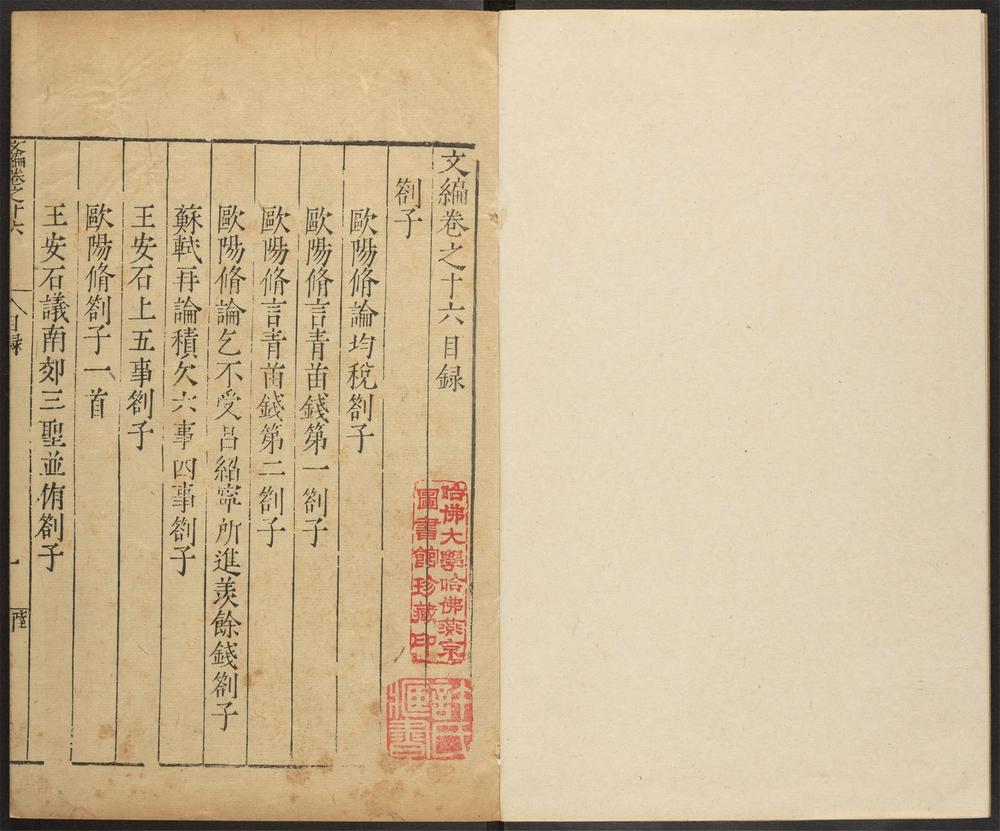 文編卷之十六目録
劄子
歐陽脩論均稅劄子
歐陽脩言青苗錢第一劄子
歐陽脩言青苗錢第二劄子
歐陽脩論乞不受呂紹寧所進羨餘錢劄子
蘇軾再論積欠六事四事劄子
王安石上五事劄子
歐陽脩劄子一首
王安石議南郊三聖並侑劄子
文編卷之十六
目録
一
陸
哈佛大學哈佛燕京
圖書館珍藏印